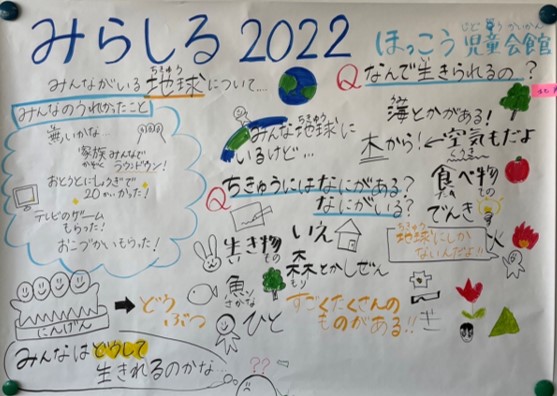 みらしる 2022
ほっこう 児童会館
みんながいる 地球について...
ちきゅう
みんなのうれしかったこと
家族みんなで
かぞく ラウンドワン!
おとうとにしょうぎで
20かいかった!
テレビのゲーム
もらった!
おこづかいもらった!
みんな地球に
ちきゅう
いるけど...
Q ちきゅうにはなにがある?
なにがいる?
生き物
いえ
森とかしぜん
もり
魚
さかな
ひと
すごくたくさんの
ものがある!!
にんげん
どうぶつ
みんなはどうして
生きれるのかな...
??
Q なんで生きられるの?
海とかがある!
木から!←空気もだよ
食べ物
でんき
地球にしか
ちきゅう
ないんだよ!!
火